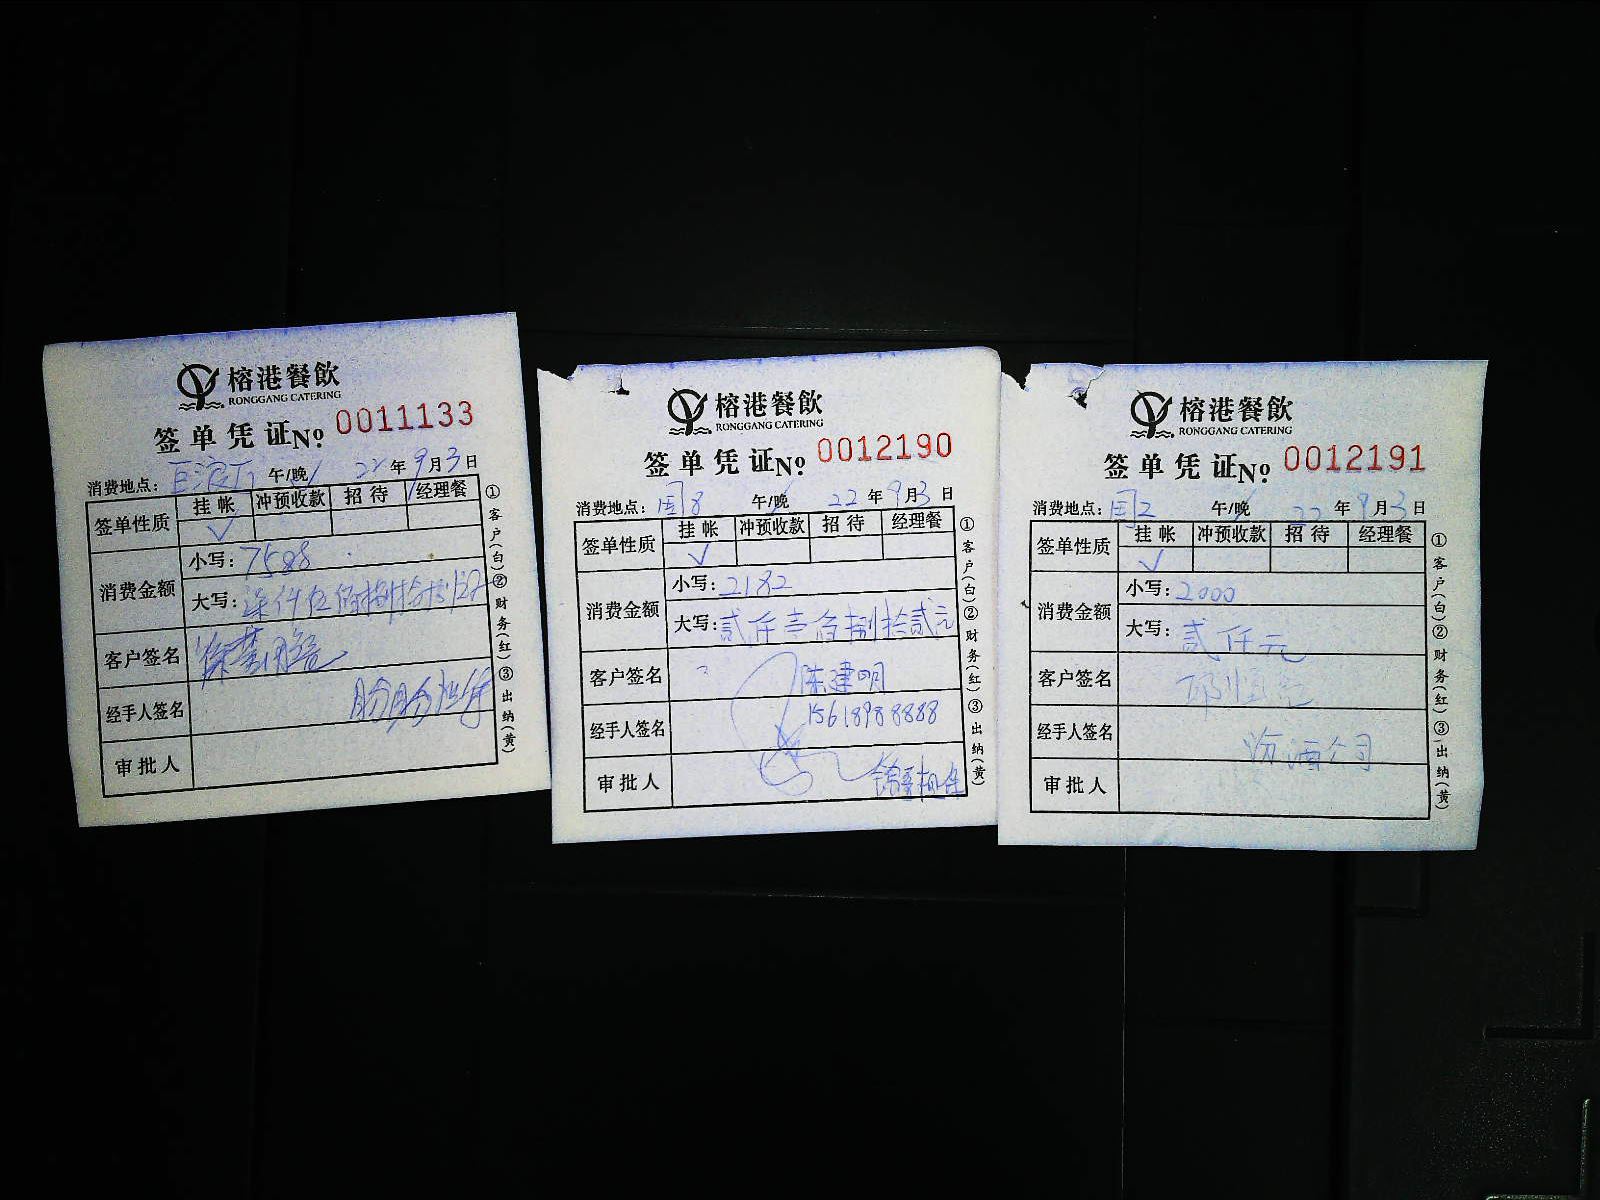 榕港餐飲
RONGGANG CATERING
签单凭证 № 0011133
消费地点： 午/晚 22年9月3日
签单性质 挂帐 冲预收款 招待 经理餐
✓
消费金额 小写：7588
大写：柒仟伍佰捌拾捌元
客户签名
经手人签名
审批人
①客户(白)②财务(红)③出纳(黄)
榕港餐飲
RONGGANG CATERING
签单凭证 № 0012190
消费地点：国8 午/晚 22年9月3日
签单性质 挂帐 冲预收款 招待 经理餐
✓
消费金额 小写：2182
大写：贰仟壹佰捌拾贰元
客户签名 陈建明
经手人签名 15618988888
审批人
①客户(白)②财务(红)③出纳(黄)
榕港餐飲
RONGGANG CATERING
签单凭证 № 0012191
消费地点：国2 午/晚 22年9月3日
签单性质 挂帐 冲预收款 招待 经理餐
✓
消费金额 小写：2000
大写：贰仟元
客户签名
经手人签名 汾酒公司
审批人
①客户(白)②财务(红)③出纳(黄)